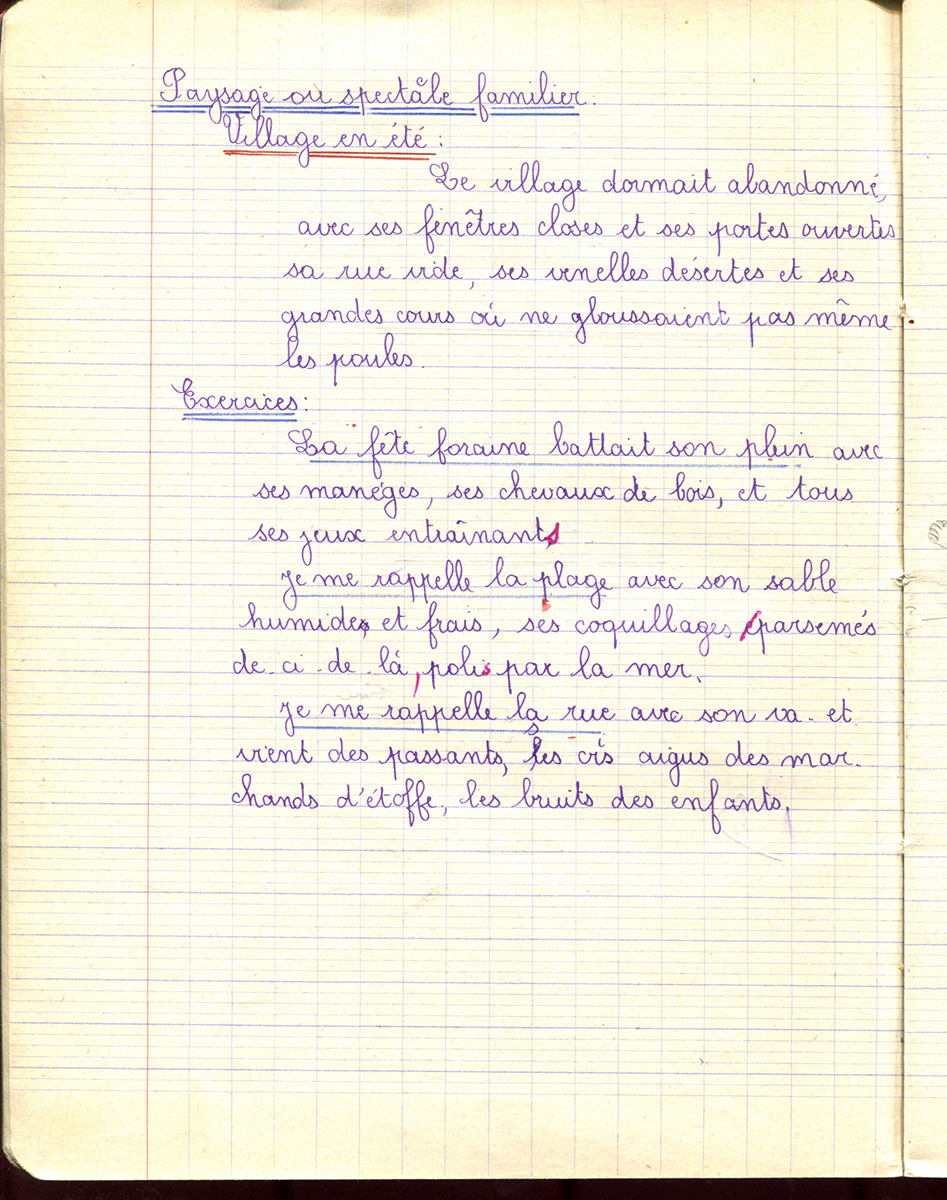 Paysage ou spectacle familier.
Village en été :
Le village dormait abandonné,
avec ses fenêtres closes et ses portes ouvertes
sa rue vide, ses venelles désertes et ses
grandes cours où ne gloussaient pas même
les poules.
Exercices :
La fête foraine battait son plein avec
ses manèges, ses chevaux de bois, et tous
ses jeux entraînants
Je me rappelle la plage avec son sable
humide et frais, ses coquillages parsemés
de-ci de-là, polis par la mer.
Je me rappelle la rue avec son va-et
vient des passants, ses cris aigus des mar-
chands d'étoffe, les bruits des enfants.